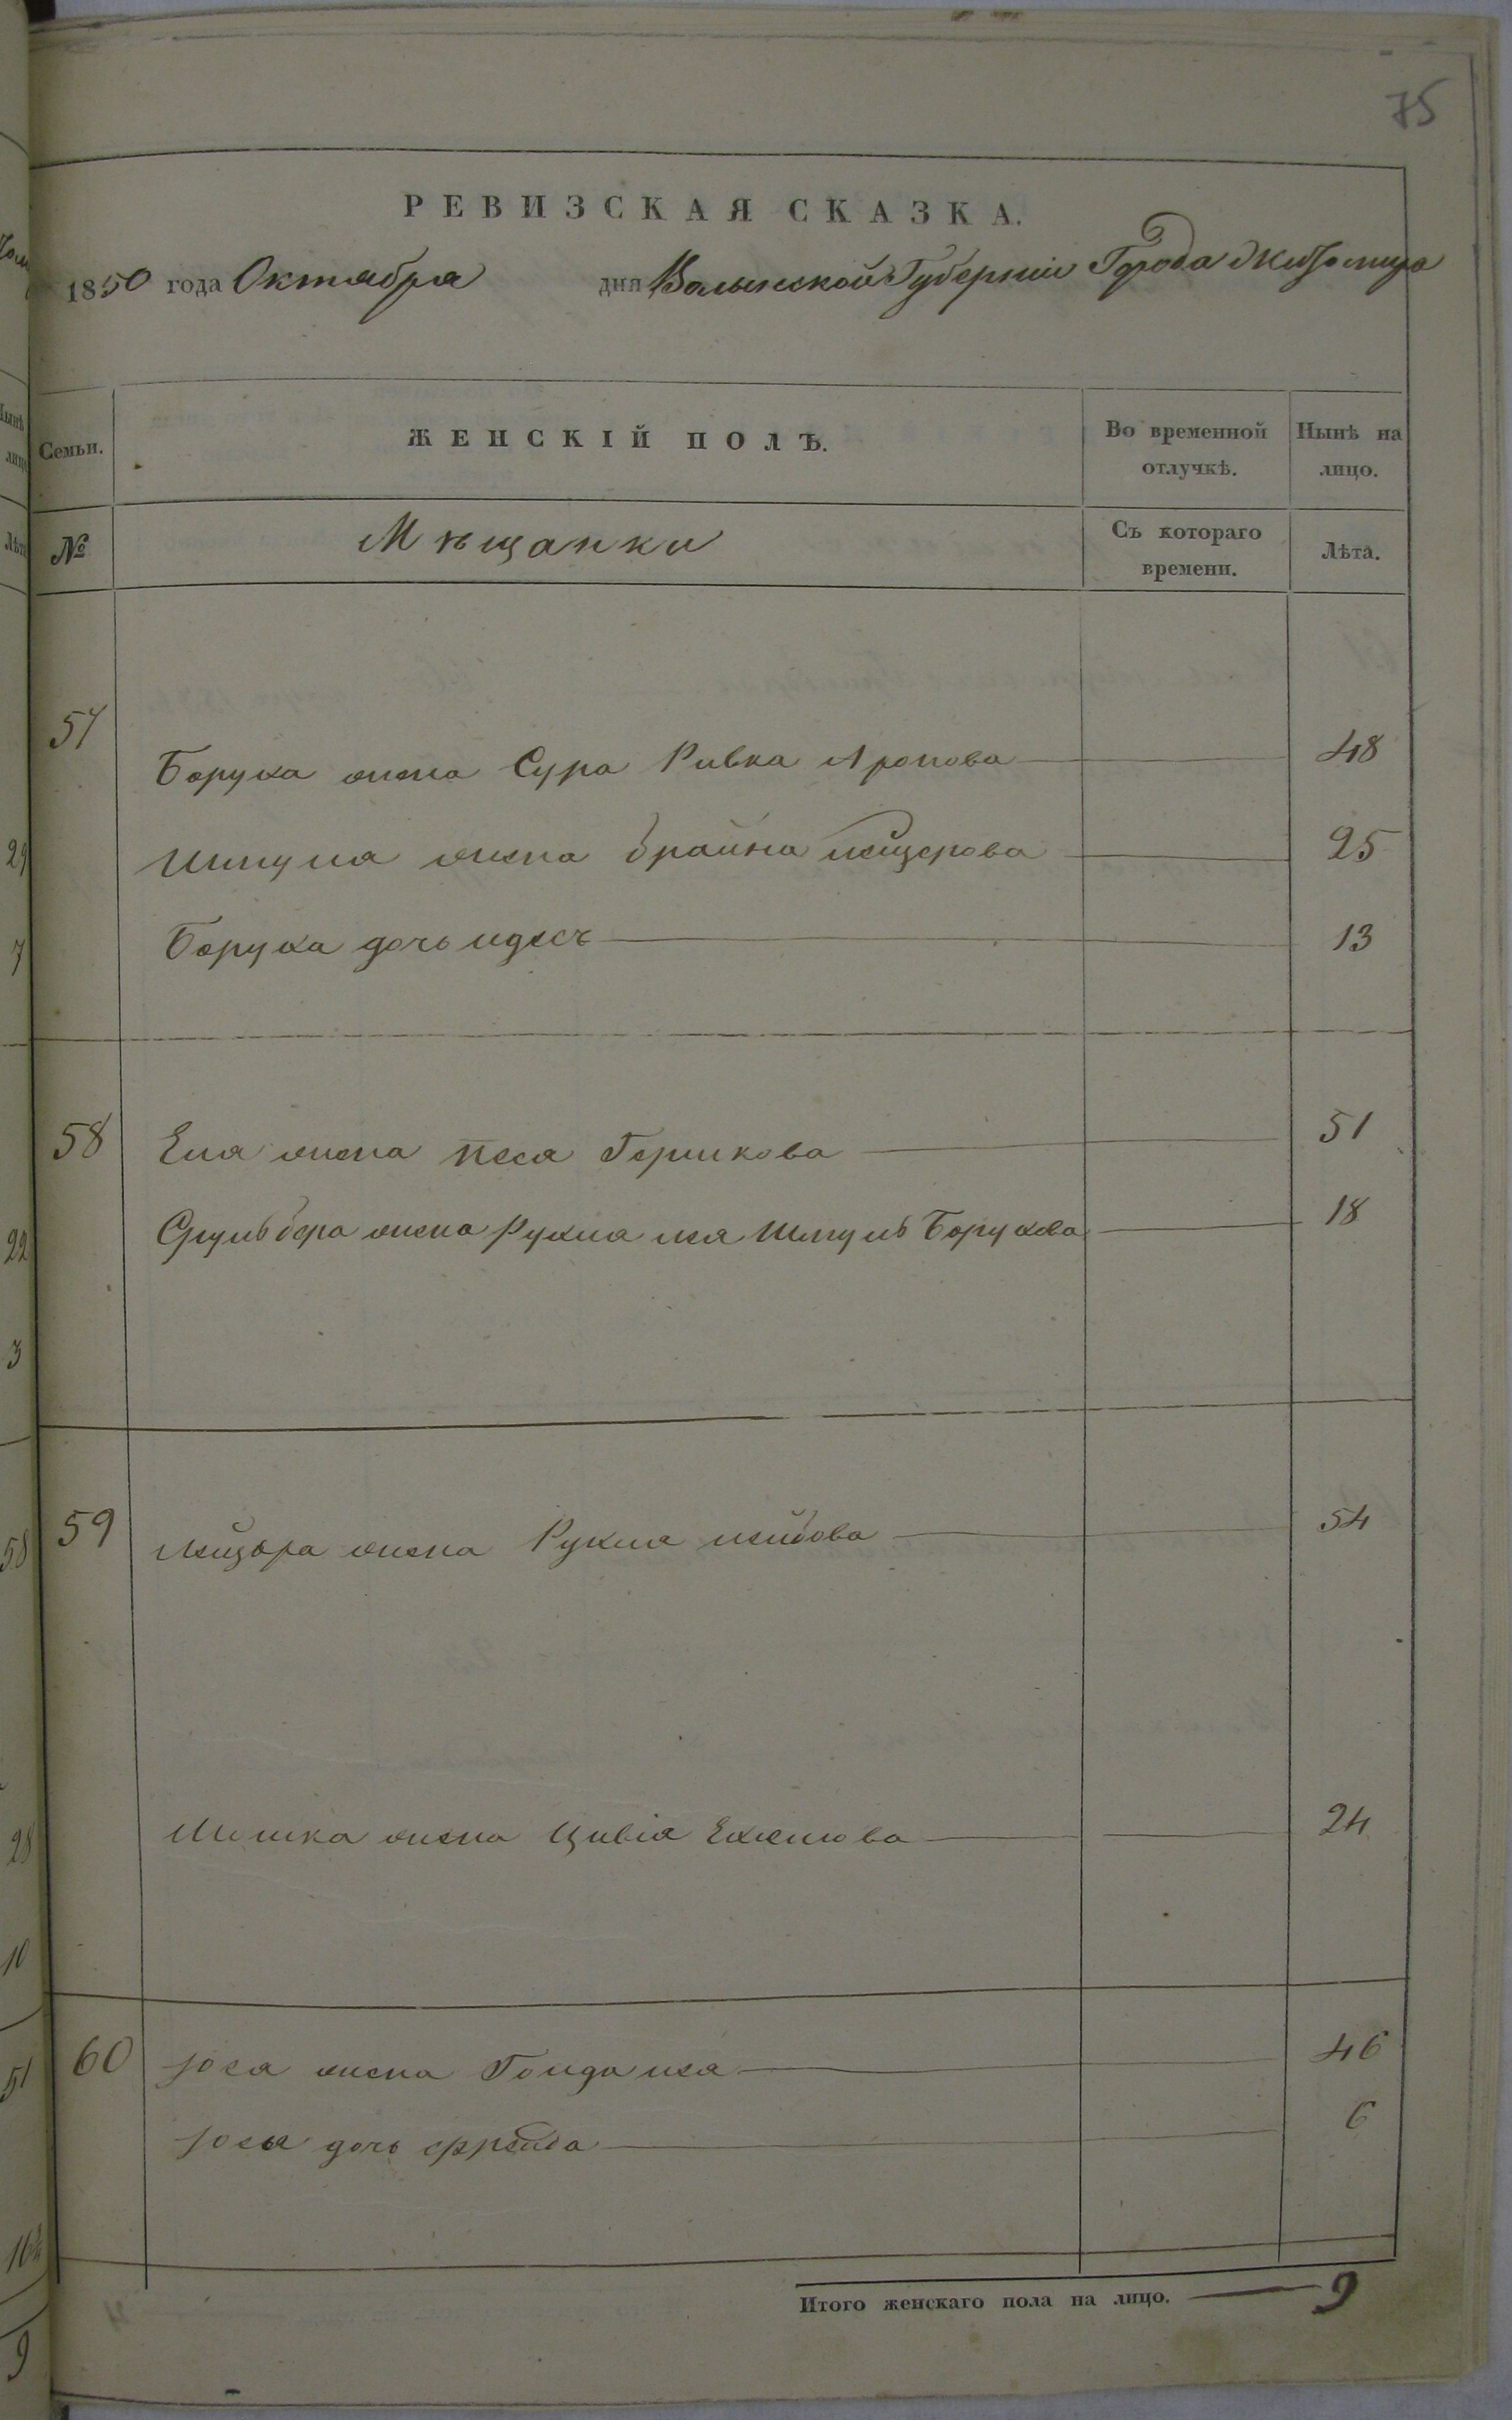 75
РЕВИЗСКАЯ СКАЗКА.
1850 года Октября дня Волынской Губерніи Города Житомира
Семьи. ЖЕНСКІЙ ПОЛЪ. Во временной отлучкѣ. Нынѣ на лицо.
№ Мѣщанки Съ котораго времени. Лѣта.
57
Боруха жена Сура Ривка Аронова 48
Шмуля жена Брайна Лейзерова 25
Боруха дочь Идесъ 13
58 Еля жена Песя Гершкова 51
жена Рухля Лея Шмуль Борухова 18
59 Лейзора жена Рухля Лейбова 54
жена Цивія 24
60 Іося жена Голда Лея 46
Іося дочь Фрейда 6
Итого женскаго пола на лицо. 9
29
7
22
3
58
28
10
51
9